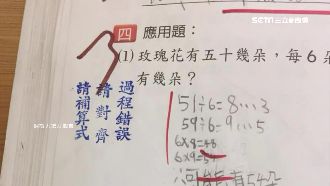 SETN 三立新聞網
四 應用題：
(1) 玫瑰花有五十幾朵，每6朵
有幾朵？
過程錯誤
請對齊
請補算式
51÷6=8…3
59÷6=9…5
6×8=48
6×9=54
可能有54朵
SETN 三立新聞網